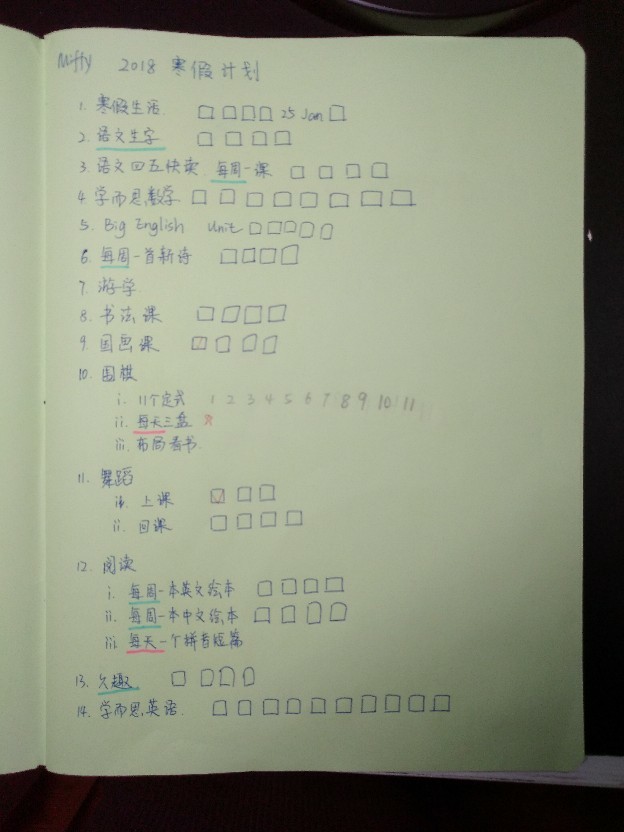 Miffy 2018 寒假计划
1. 寒假生活 25 Jan
2. 语文生字
3. 语文四五快读 每周一课
4. 学而思数学
5. Big English Unit
6. 每周一首新诗
7. 游学
8. 书法课
9. 国画课
10. 围棋
i. 11个定式 1 2 3 4 5 6 7 8 9 10 11
ii. 每天三盘
iii. 布局看书
11. 舞蹈
i. 上课
ii. 回课
12. 阅读
i. 每周一本英文绘本
ii. 每周一本中文绘本
iii. 每天一个拼音短篇
13. 久趣
14. 学而思英语